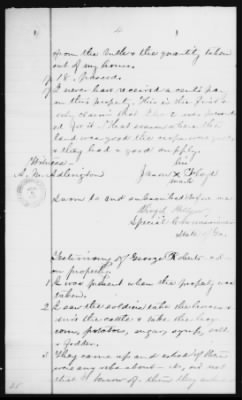 4
from the bulk & the quantity taken
out of my house.
18. passed.
I never have received a cent's pay
on this property. This is the first &
only claim that I have presented
for it. That season where the
land was good the crops were good
& they had a good supply.
Witness his
A. M. Adlington Jason X Floyd
mark
Sworn to and subscribed before me
Virgil Hillyer
Special Commissioner
State of Ga.
Testimony of George Roberts col-
on property.
1 I was present when the property was
taken.
2 I saw the soldiers take the horses &
drive the cattle & take the hay
corn, potatoes, sugar, syrup, salt
& fodder.
3 They came up and asked if there
was any about it, did not
that I know of